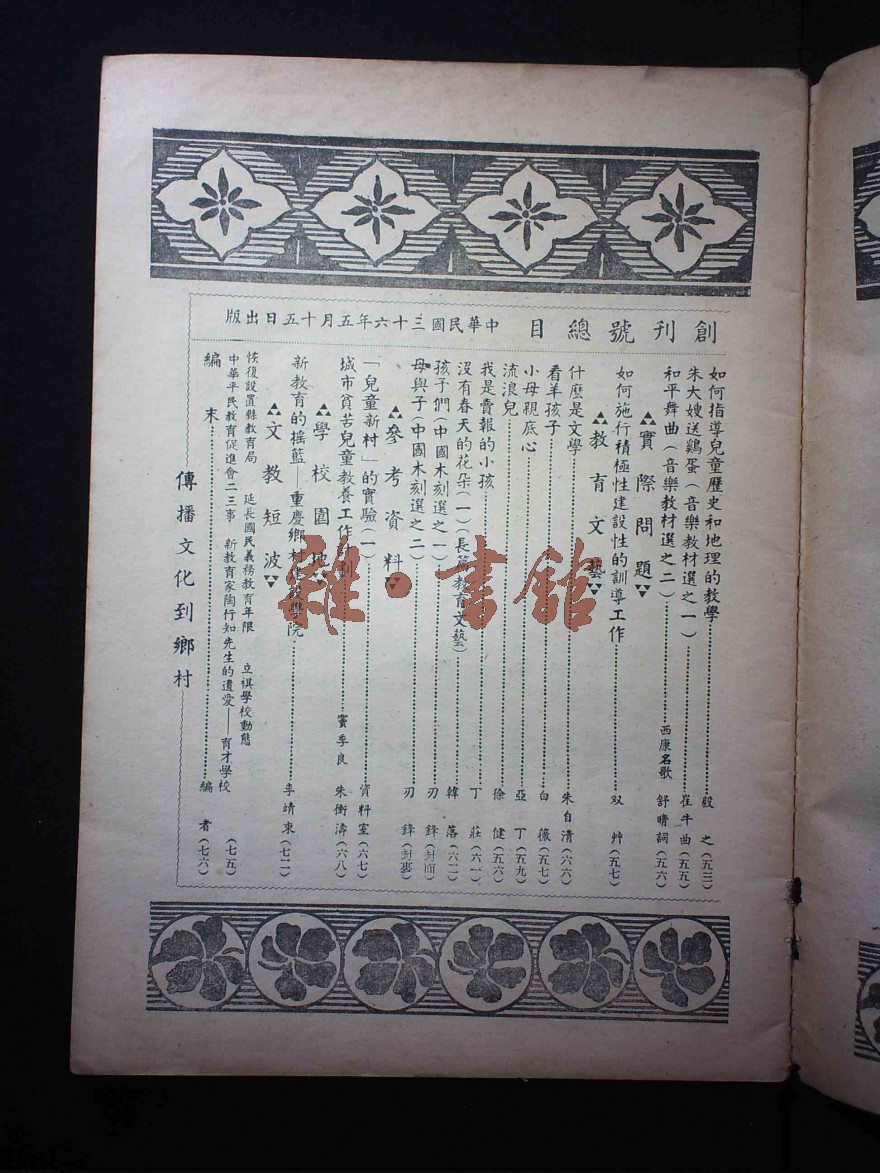 創刊號總目
中華民國三十六年五月十五日出版
如何指導兒童歷史和地理的教學 殷之(五三)
朱大嫂送鷄蛋(音樂教材選之一) 崔牛曲(五五)
和平舞曲(音樂教材選之二) 西康名歌 舒晴詞(五六)
實際問題
如何施行積極性建設性的訓導工作 双艸(五七)
教育文藝
什麼是文學 朱自清(六六)
看羊孩子 白薇(五七)
小母親底心 亞丁(五九)
流浪兒 徐健(五六)
我是賣報的小孩 丁莊(六一)
沒有春天的花朵(一)(長篇教育文藝) 韓落(六二)
孩子們(中國木刻選之一) 刃鋒(封面)
母與子(中國木刻選之二) 刃鋒(封裏)
參考資料
「兒童新村」的實驗(一) 資料室(六七)
城市貧苦兒童教養工作計劃 竇季良 朱衝濤(六八)
學校園地
新教育的搖籃——重慶鄉村建設學院 李靖東(七二)
文教短波
恢復設置縣教育局 延長國民義務教育年限 立祺學校動態
中華平民教育促進會二三事 新教育家陶行知先生的遺愛——育才學校 (七五)
編末 編者(七六)
傳播文化到鄉村
雜·書館